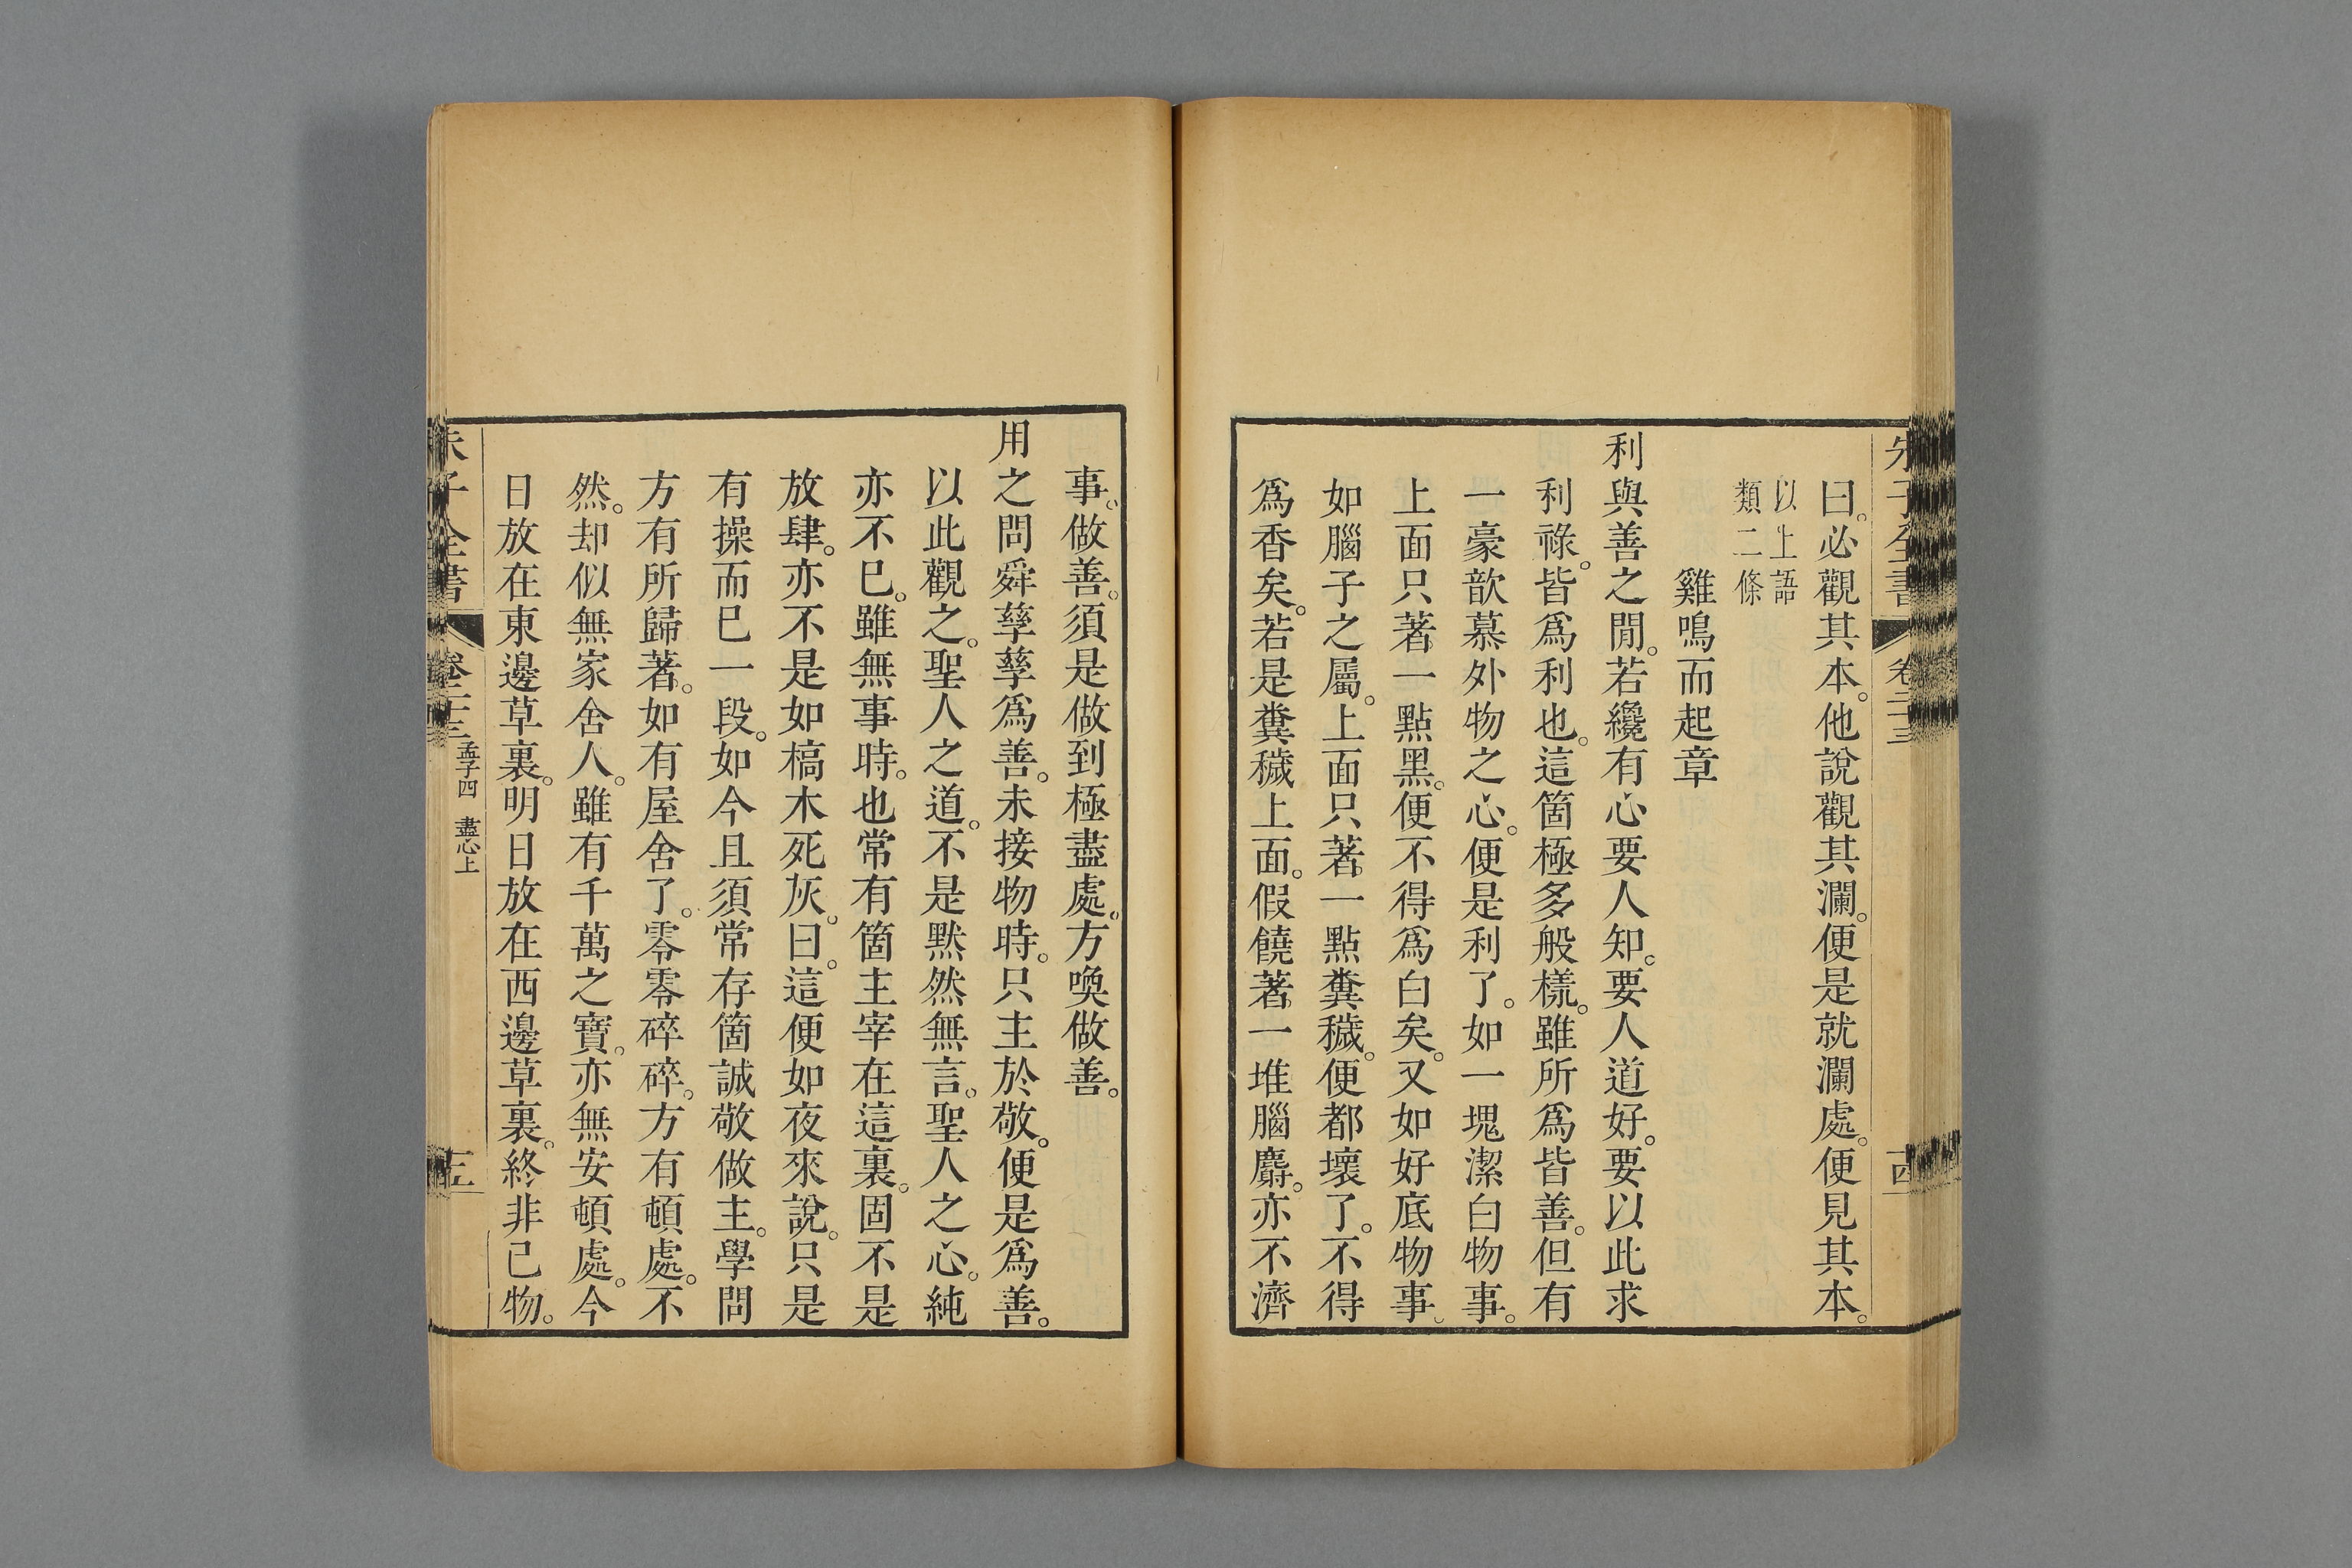 朱子全書 卷二十三
曰。必觀其本。他說觀其瀾。便是就瀾處。便見其本。
以上語
類二條
雞鳴而起章
利與善之閒。若纔有心要人知。要人道好。要以此求
利祿。皆爲利也。這箇極多般樣。雖所爲皆善。但有
一豪歆慕外物之心。便是利了。如一塊潔白物事。
上面只著一點黑。便不得爲白矣。又如好底物事。
如腦子之屬。上面只著一點糞穢。便都壞了。不得
爲香矣。若是糞穢上面。假饒著一堆腦麝。亦不濟
事。做善。須是做到極盡處。方喚做善。
用之問舜孳孳爲善。未接物時。只主於敬。便是爲善。
以此觀之。聖人之道。不是默然無言。聖人之心。純
亦不已。雖無事時。也常有箇主宰在這裏。固不是
放肆。亦不是如槁木死灰。曰。這便如夜來說。只是
有操而已一段。如今且須常存箇誠敬做主。學問
方有所歸著。如有屋舍了。零零碎碎。方有頓處。不
然。却似無家舍人。雖有千萬之寶。亦無安頓處。今
日放在東邊草裏。明日放在西邊草裏。終非己物。
朱子全書 卷二十三 孟子四 盡心上